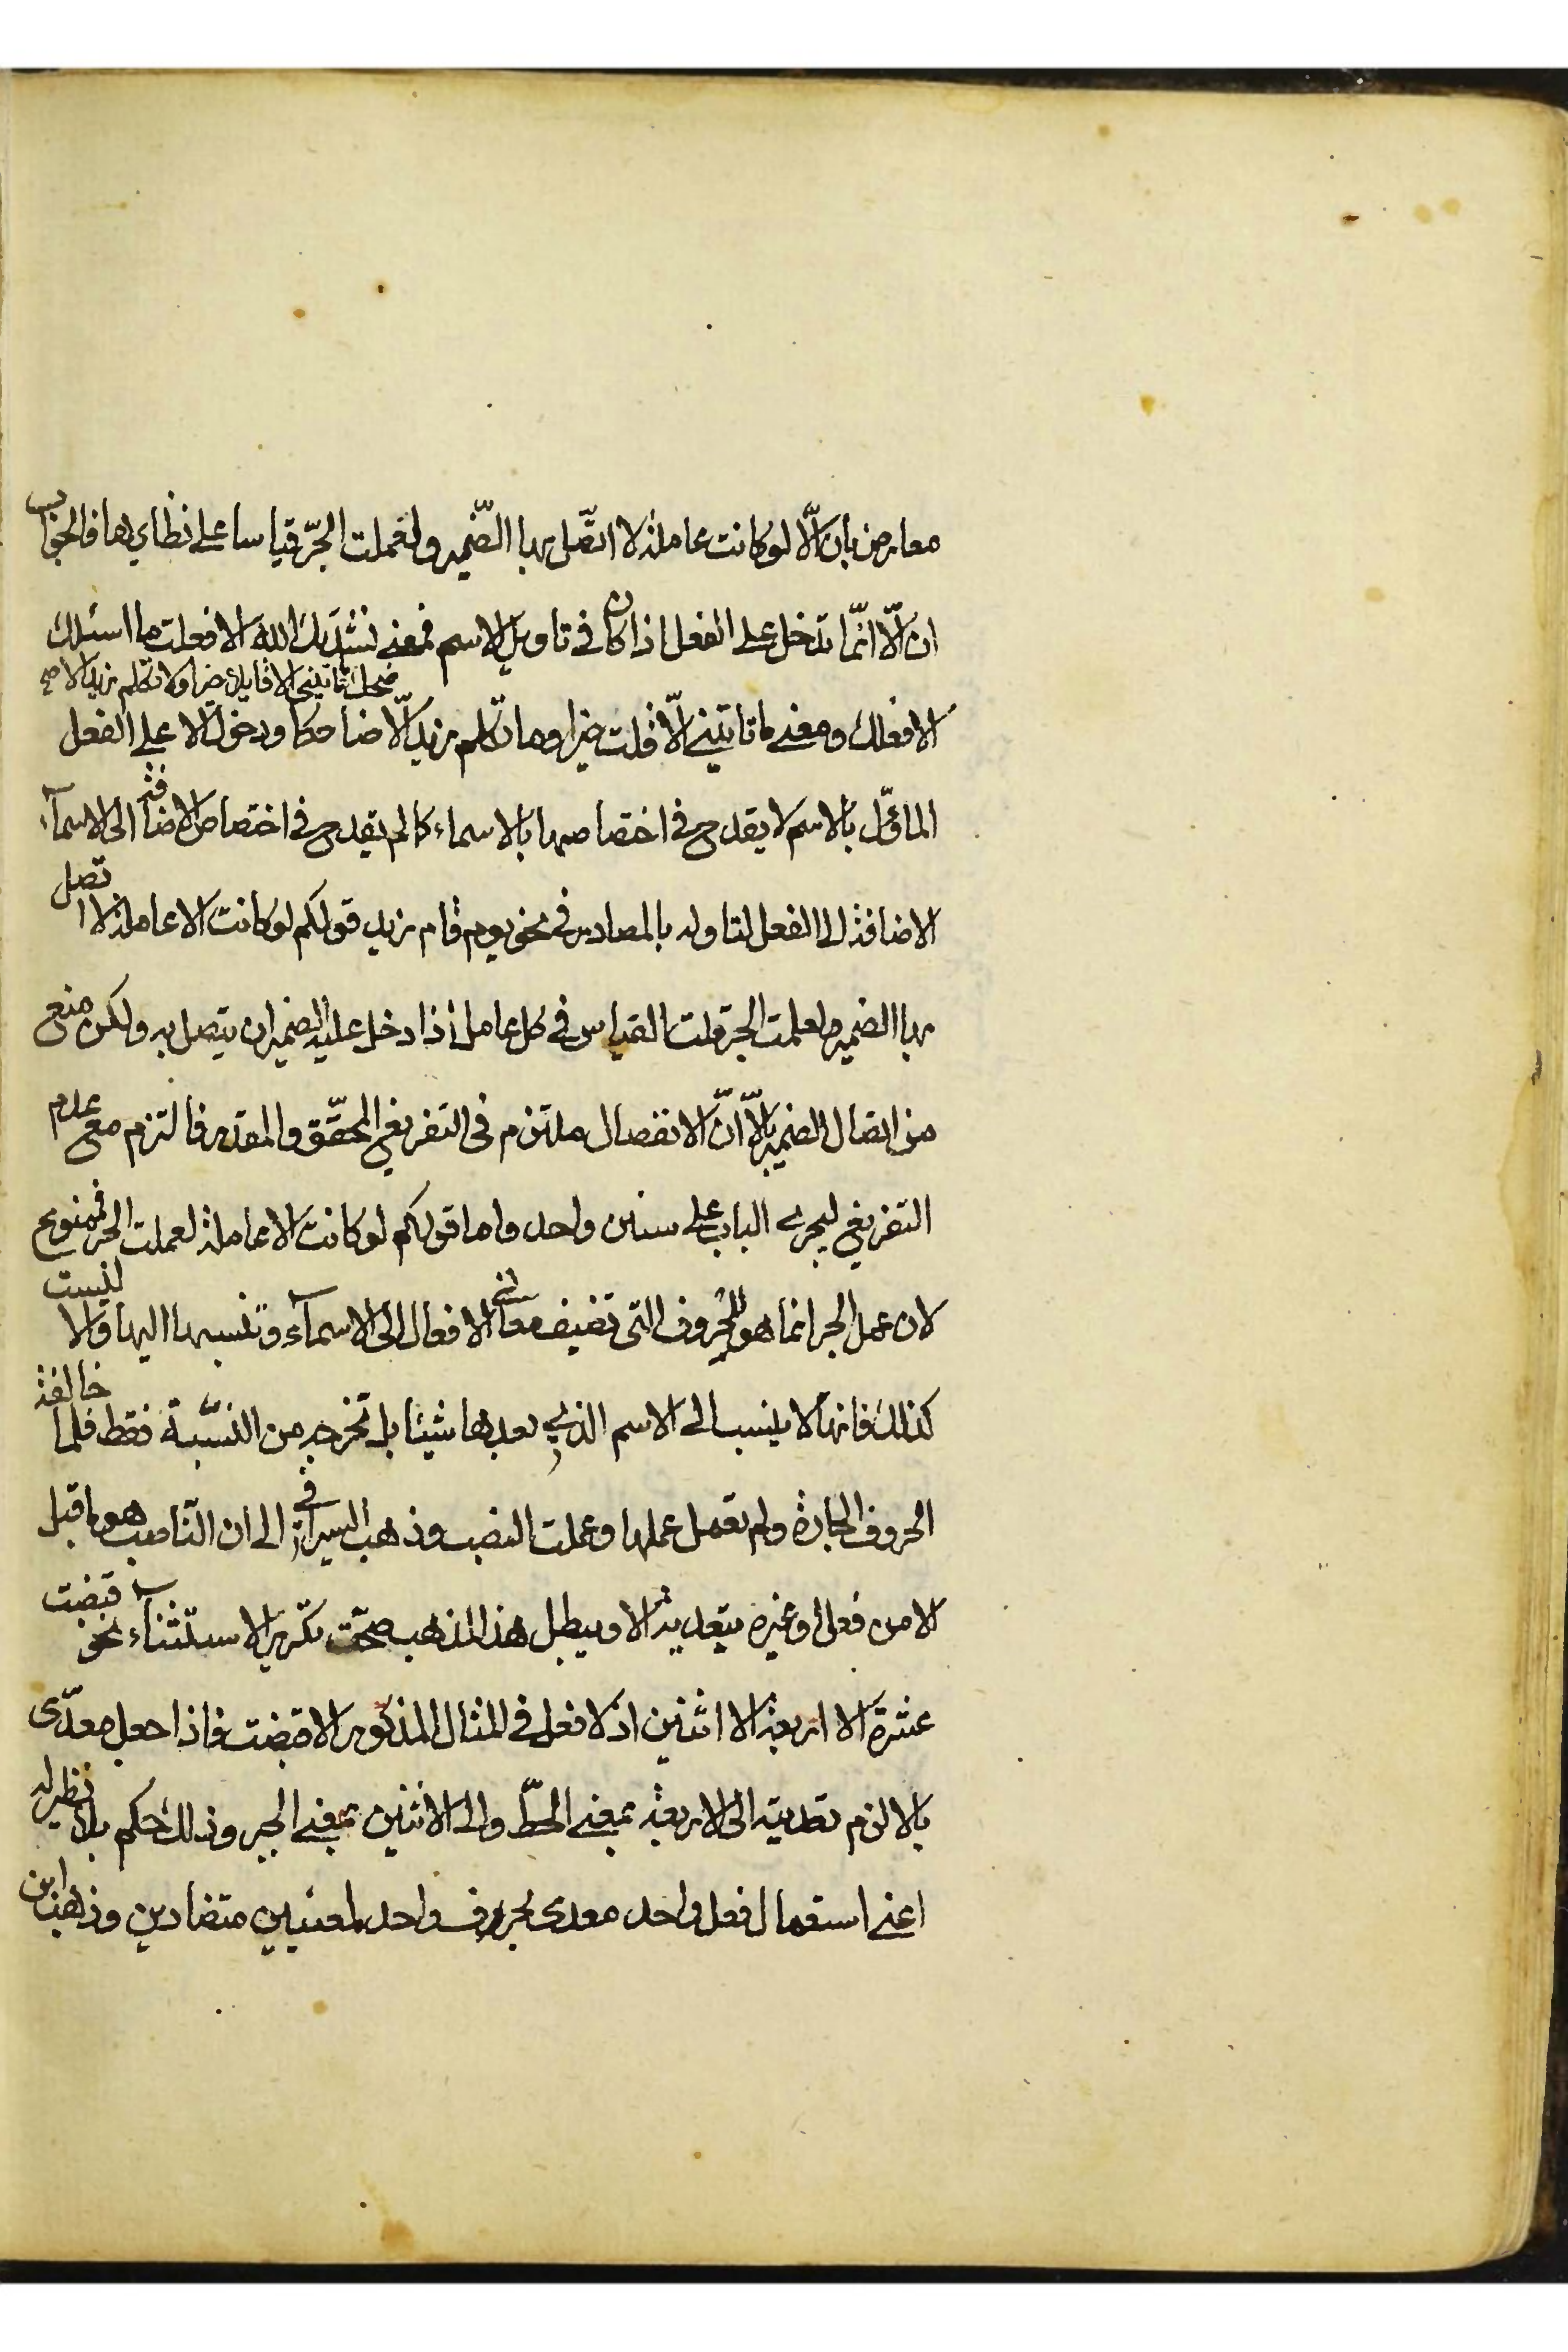 معارض بان الّا لو كانت عاملة لا اتّصل بها الضّمير ولعملت الجرّ قياسا على نظايرها فالجواب
ان الّا انّما تدخل على الفعل اذا كان في تاويل الاسم فمعنى نشدتك الله الا فعلت ما اسئلك
الا فعلك ومعنى ما تاتيني الّا قلت خيرا وما تكلم زيد الّا ضاحكا ودخول الا على الفعل
الماؤّل بالاسم لا يقدح في اختصاصها بالاسماء كما لم يقدح في اختصاص الاضافة الى الاسمآء
الاضافة الى الفعل لتاوله بالمصادر في نحو يوم قام زيد قولكم لو كانت الا عاملة لا اتصل
بها الضمير ولعملت الجر قلت القياس في كل عامل اذا دخل عليه الضمير ان يتصل به ولكن منع
من اتصال الضمير بالّا انّ الانفصال ملتزم فى التفريغ المحقّق والمقدر فالتزم مع عدم
التفريغ ليجرى الباب على سنن واحد واما قولكم لو كانت الا عاملة لعملت الجر فممنوع
لان عمل الجر انما هو للحروف التى تضيف معانى الافعال الى الاسمآء وتنسبها اليها والا ليست
كذلك فانها لا ينسب الى الاسم الذي بعدها شيئا بل تخرجه من النسّبة فقط فلما خالفة
الحروف الجارة ولم تعمل عملها وعملت النصب وذهب السيرافي الى ان النّاصب هو ما قبل
الا من فعل او غيره بتعدية الا ويبطل هذا المذهب صحّت تكّرير الاستثنآء نحو قبضت
عشرة الا اربعة الا اثنين اذ لا فعل في المثال المذكور الا قبضت فاذا جعل معدّى
بالا لزم تعديته الى الاربعة بمعنى الحطّ والى الاثنين بمعنى الجبر وذلك حكم بلا نظير له
اعنى استعمال فعل واحد معدى بحرف واحد لمعنيين متضادين وذهب ابن